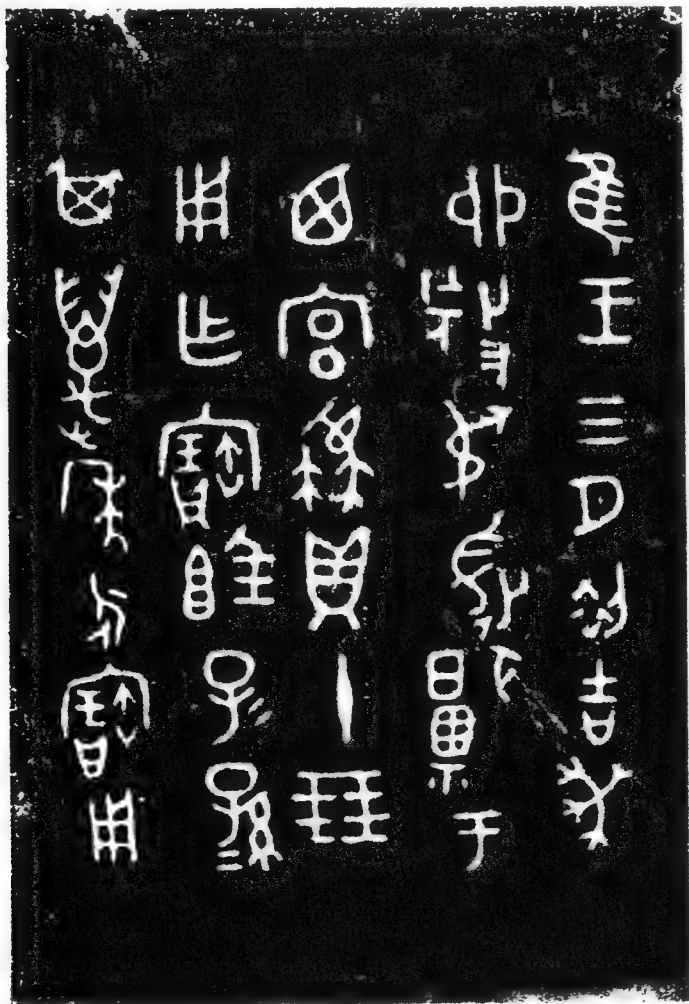 隹王三月初吉癸
卯敔叔微于
西宮貝十朋
用乍寶𣪘子=孫=
其萬年永寶用